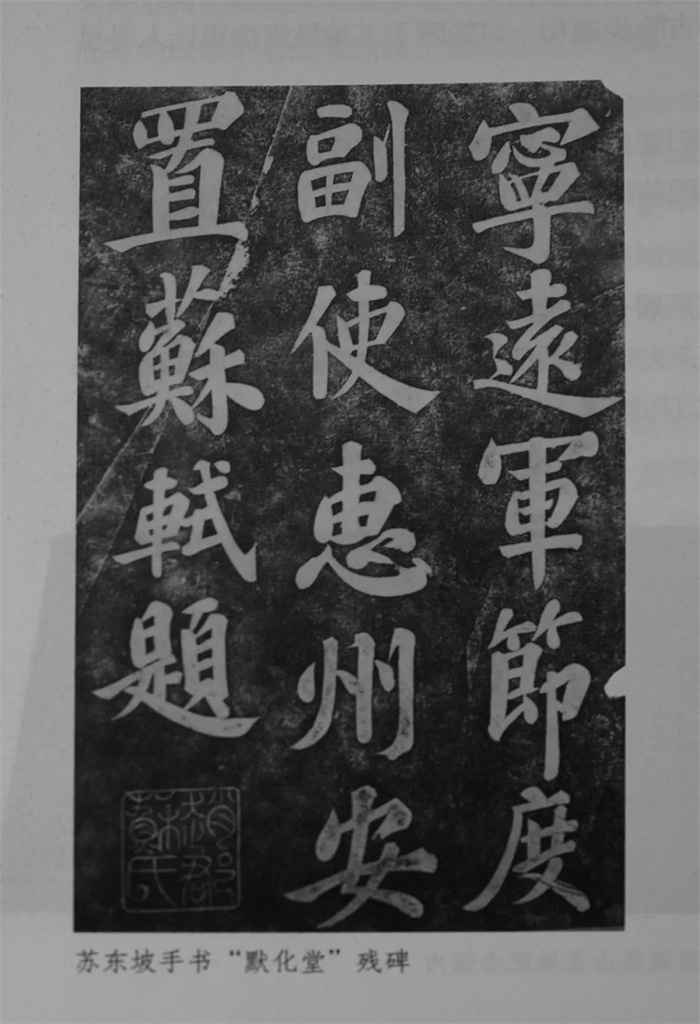 寧遠軍節度
副使惠州安
置蘇軾題
趙郡蘇氏
苏东坡手书“默化堂”残碑